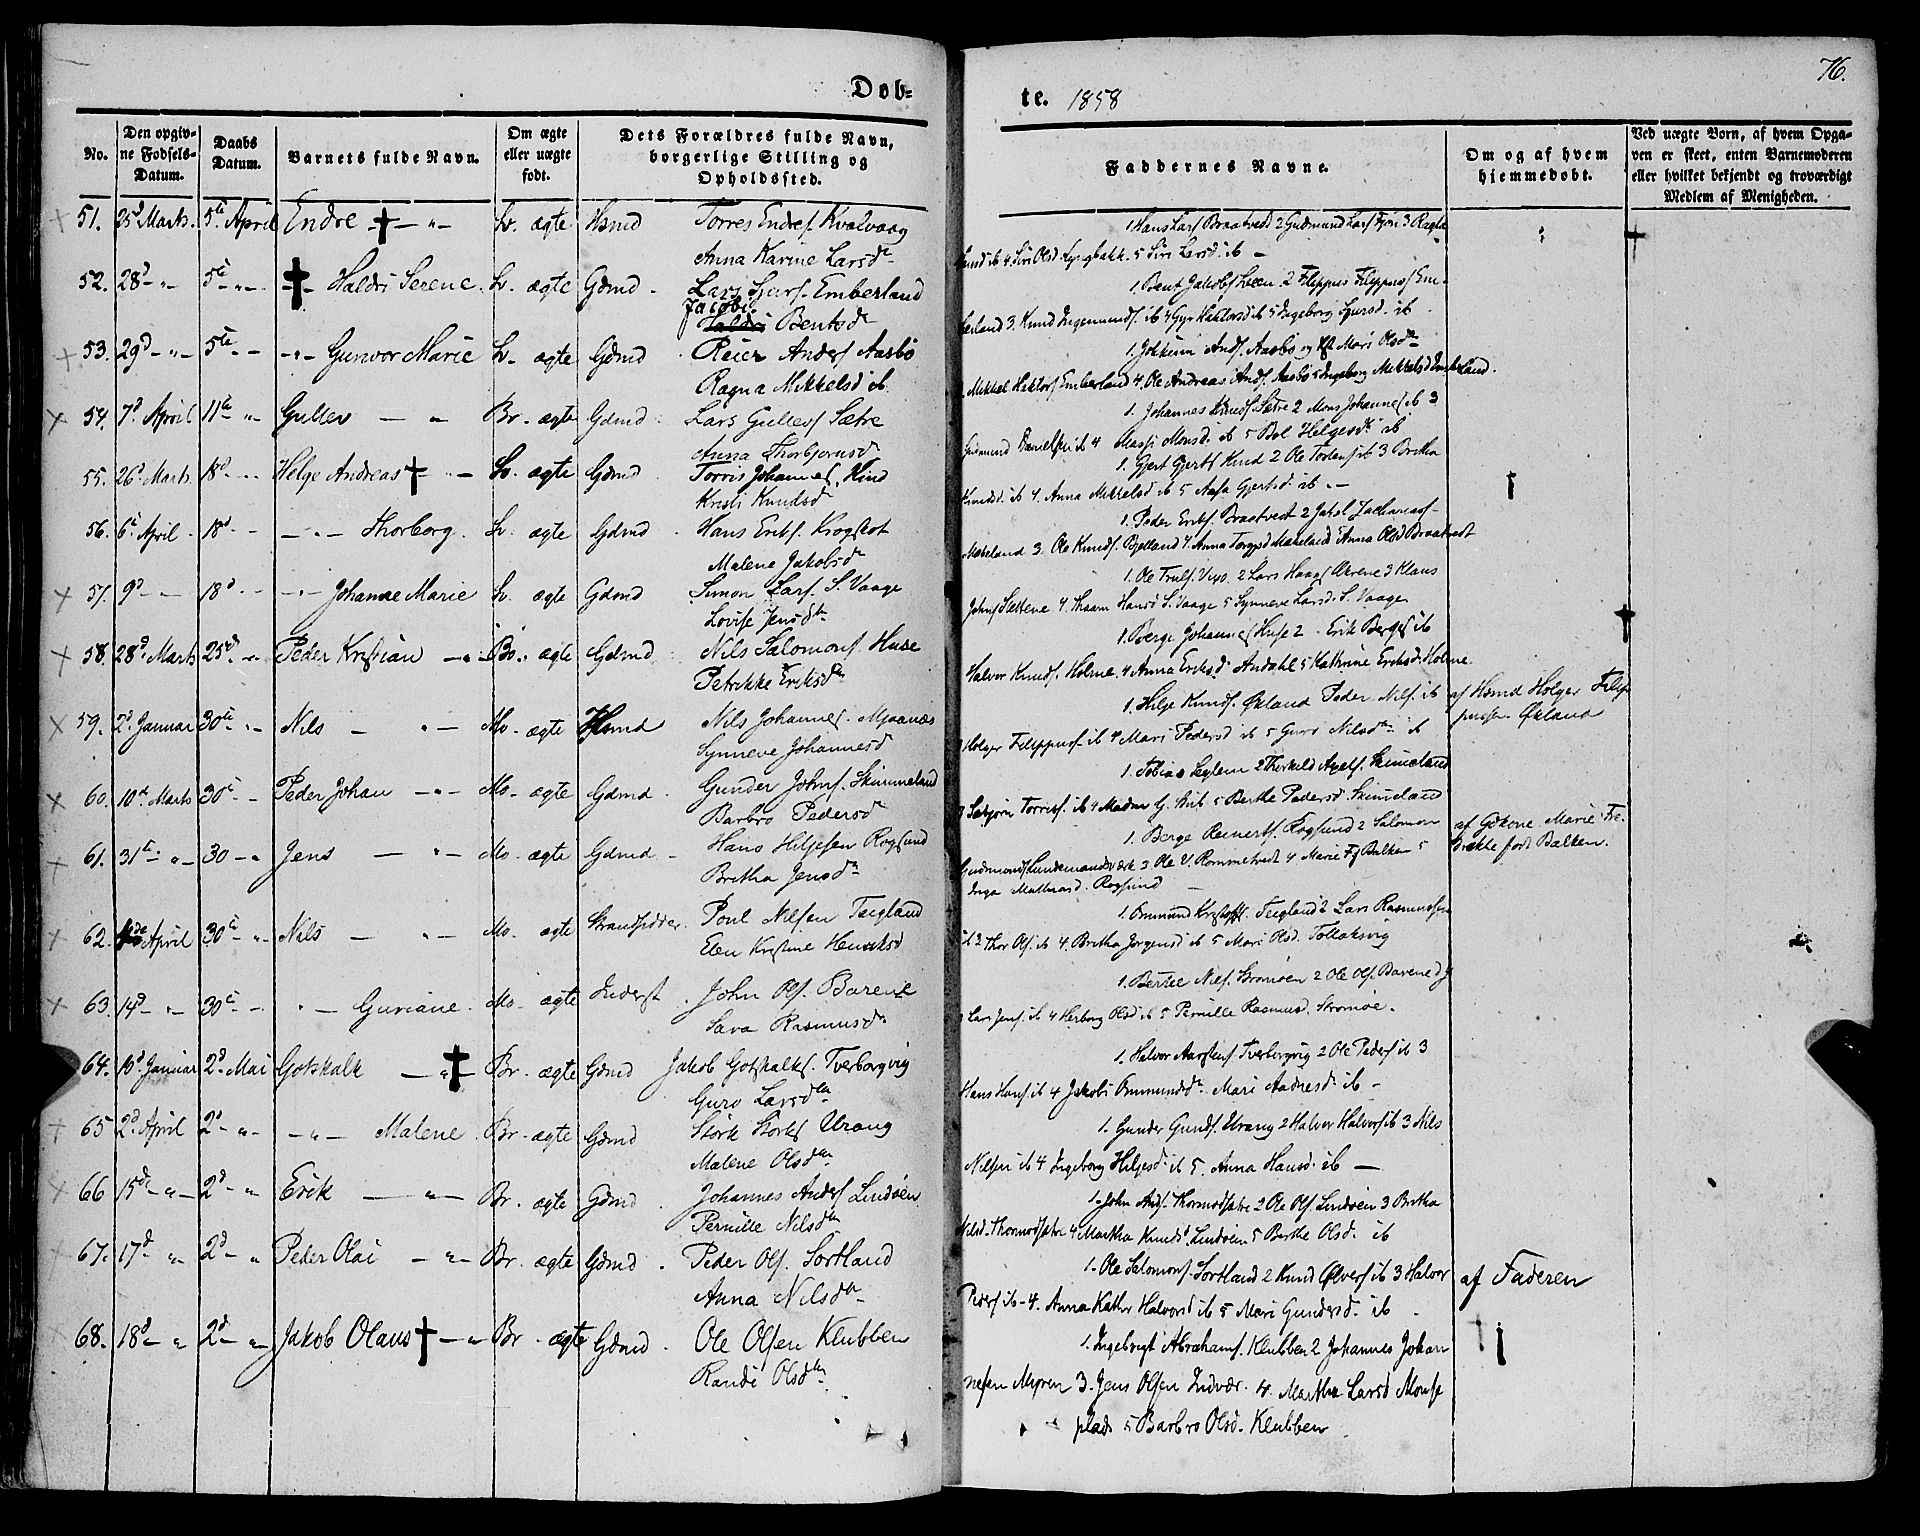 Døb=
te. 1858
76.
No.
Den opgiv-
ne Fødsels-
Datum.
Daabs
Datum.
Barnets fulde Navn.
Om ægte
eller uægte
født.
Dets Forældres fulde Navn,
borgerlige Stilling og
Opholdssted.
Faddernes Navne.
Om og af hvem
hjemmedøbt.
Ved uægte Børn, af hvem Opga-
ven er skeet, enten Barnemoderen
eller hvilket bekjendt og troværdigt
Medlem af Menigheden.
51. 25d Marts. 5te April Endre † — „ — Sv. ægte Hsmd Torres Endres. Kvalvaag
Anna Karine Larsdtr
1 Hans Lars. Braatvedt 2 Gudmund Lars. 3 Ragla
4. Siri Olsd. 5 Siri Larsd ib —
52. 28d — „ 5te „ — † Haldri Serene. Sv. ægte Gdmd. Lars Sjurs. Emberland
Jacobi
Haldri Bentsd
1. Bent Jakobs. 2 Filippus Filippus. Em-
berland 3. Knud Ingemunds. ib 4 Gyri Haktorsd ib 5 Ingeborg Sjursd. ib
53. 29d — „ — 5te — — „ — Gunvor Marie Sv. ægte Gdmd. Reier Anders. Aasbø
Ragna Mikkelsd ib.
1. Jokkum Ands. Aasbø og Mari Olsdtr
Mikkel Haktors. Emberland 4. Ole Andreas Ands. Aasbø 5 Ingeborg Mikkelsd Emberland.
54. 7d April 11te „ Gullev — „ Br. ægte Gdmd. Lars Gullevs. Sætre
Anna Thorbjørnsd
1. Johannes Knuds. Sætre 2 Mons Johannes. ib 3
Gudmund Daniels. ib 4 Massi Monsd. ib 5 Bol Helgesdtr ib
55. 26d Marts 18d „ Helge Andreas † — Sv. ægte Gdmd. Torris Johannes. Hind
Kristi Knudsd
1. Gjert Gjerts. 2 Ole Tostens. ib 3 Britha
Knudsd. ib 4. Anna Mikkelsd ib 5 Aasa Gjertsd. ib. —
56. 6te April. 18d — — „ — Thorborg. Sv. ægte Gdmd. Hans Eriks. Krogstot
Malene Jakobsd
1. Peder Eriks. Braatvedt 2 Jakob Zacharias.
Mækeland 3. Ole Knuds. Bjelland 4. Anna Torgsd Mækeland Anna Olsd Braatvedt
57. 9d — 18d — — „ — Johanne Marie Sv. ægte Gdmd Simon Lars. S. Vaage
Lovise Jensdtr
1. Ole Truls. Vigo. 2 Lars Haag. 3 Klaus
Johns. Slettene 4. Hansd S. Vaage 5 Synneve Larsd. S. Vaage
58. 28d. Marts 25d. „ Peder Kristian — „ Bø. ægte Gdmd. Nils Salomons. Huse
Petrikke Eriksdtr
1. Berge Johannes. Huse 2. Erik Berges. ib
Halvor Knuds. Holme. 4 Anna Eriksd. Andahl 5 Kathrine Eriksd. Holme.
59. 2d Januar 30te „ Nils — „ — Mo. ægte Hsmd Nils Johannes. Mjaanæs
Synneve Johannesd
1. Helje Knuds. Økland Peder Nils. ib
Holger Filippus. ib 4 Mari Pedersd ib 5 Guri Nilsdtr ib
af Hsmd Holger Filip-
pusen. Økland
60. 10de Marts 30te — Peder Johan — „ — Mo. ægte Gdmd. Gunder Johns. Skimmeland
Barbro Pedersd
1. Tobias 2 Therkild Axels. Skimeland
3 Torris. ib 4 5 Berthe Pedersd. Skimeland
61. 31te — „ 30 — „ Jens — „ — Mo. ægte Gdmd — Hans Hiljesen Rogsund
Britha Jensdtr
1. Berge Reinerts. Rogsund 2 Salomon
Gudmunds. 3 Ole V. Rommetvedt 4 Marie Balken 5
Inga Rogsund —
af Gdkone Marie Fre-
drikke født Balken.
62. April 30te „ Nils — „ — Mo. ægte Strandsidder. Poul Nilsen Teigland
Elen Kristine Henriksd
1 Ommund Kristoffs. Teigland 2 Lars Rasmussen
ib 3 Thor Ols. ib 4. Britha Jørgensd ib 5 Mari Olsd. Tollaksvig
63. 14d „ 30te — „ — Guriane. Mo. ægte Inderst. John Ols. Barene
Sara Rasmusdtr
1. Nils. Stromøen 2 Ole Ols. Barene
3 Lars Jens. ib 4 Herborg Olsd ib 5 Pernille Rasmusd. Stromøe.
64. 10d Januar 2d Mai Gotskalk — † Br. ægte Gdmd Jakob Gotskalks. Tverborgvig
Guro Larsdtr
1. Halvor Aarstens. Tverborgvig 2 Ole Peders. ib 3
Hans Hans. ib 4 Jakobi Ommundsdtr Mari Aadnesd. ib —
65 2d April 2d „ — — „ — Malene. Br. ægte Gdmd Størk Størks. Urang
Malene Olsdtr
1. Gunder Gunds. Urang 2 Halvor Halvors. ib 3 Nils
Nilsen ib 4 Ingeborg Hiljesd. ib 5. Anna Hansd. ib —
66 15de — „ — 2d — „ Erik — „ — Br. ægte Gdmd. Johannes Anders. Lindøen
Pernille Nilsdtr
1. John Ands. Thormodsæter 2 Ole Ols. Lindøen 3 Britha
Nilsd. Thormodsæter 4 Martha Knudsd. Lindøen 5 Berthe Olsd. ib
67. 17d „ 2d — „ Peder Olai — „ — Br. ægte Gdmd. Peder Ols. Sortland
Anna Nilsdtr
1. Ole Salomons. Sortland 2 Knud Ølvers. ib 3 Halvor
Peders. ib — 4. Anna Kathr Halvorsd ib 5 Mari Gundersd. ib
af Faderen
68. 18d — „ 2d — „ Jakob Olaus † — „ Br. ægte Gdmd. Ole Olsen Klubben
Randi Olsdtr.
1. Ingebrigt Abrahams. Klubben 2 Johannes Johan
nesen Myren 3. Jens Olsen Indvær. 4. Martha Larsd Monse
plads 5 Barbro Olsd. Klubben